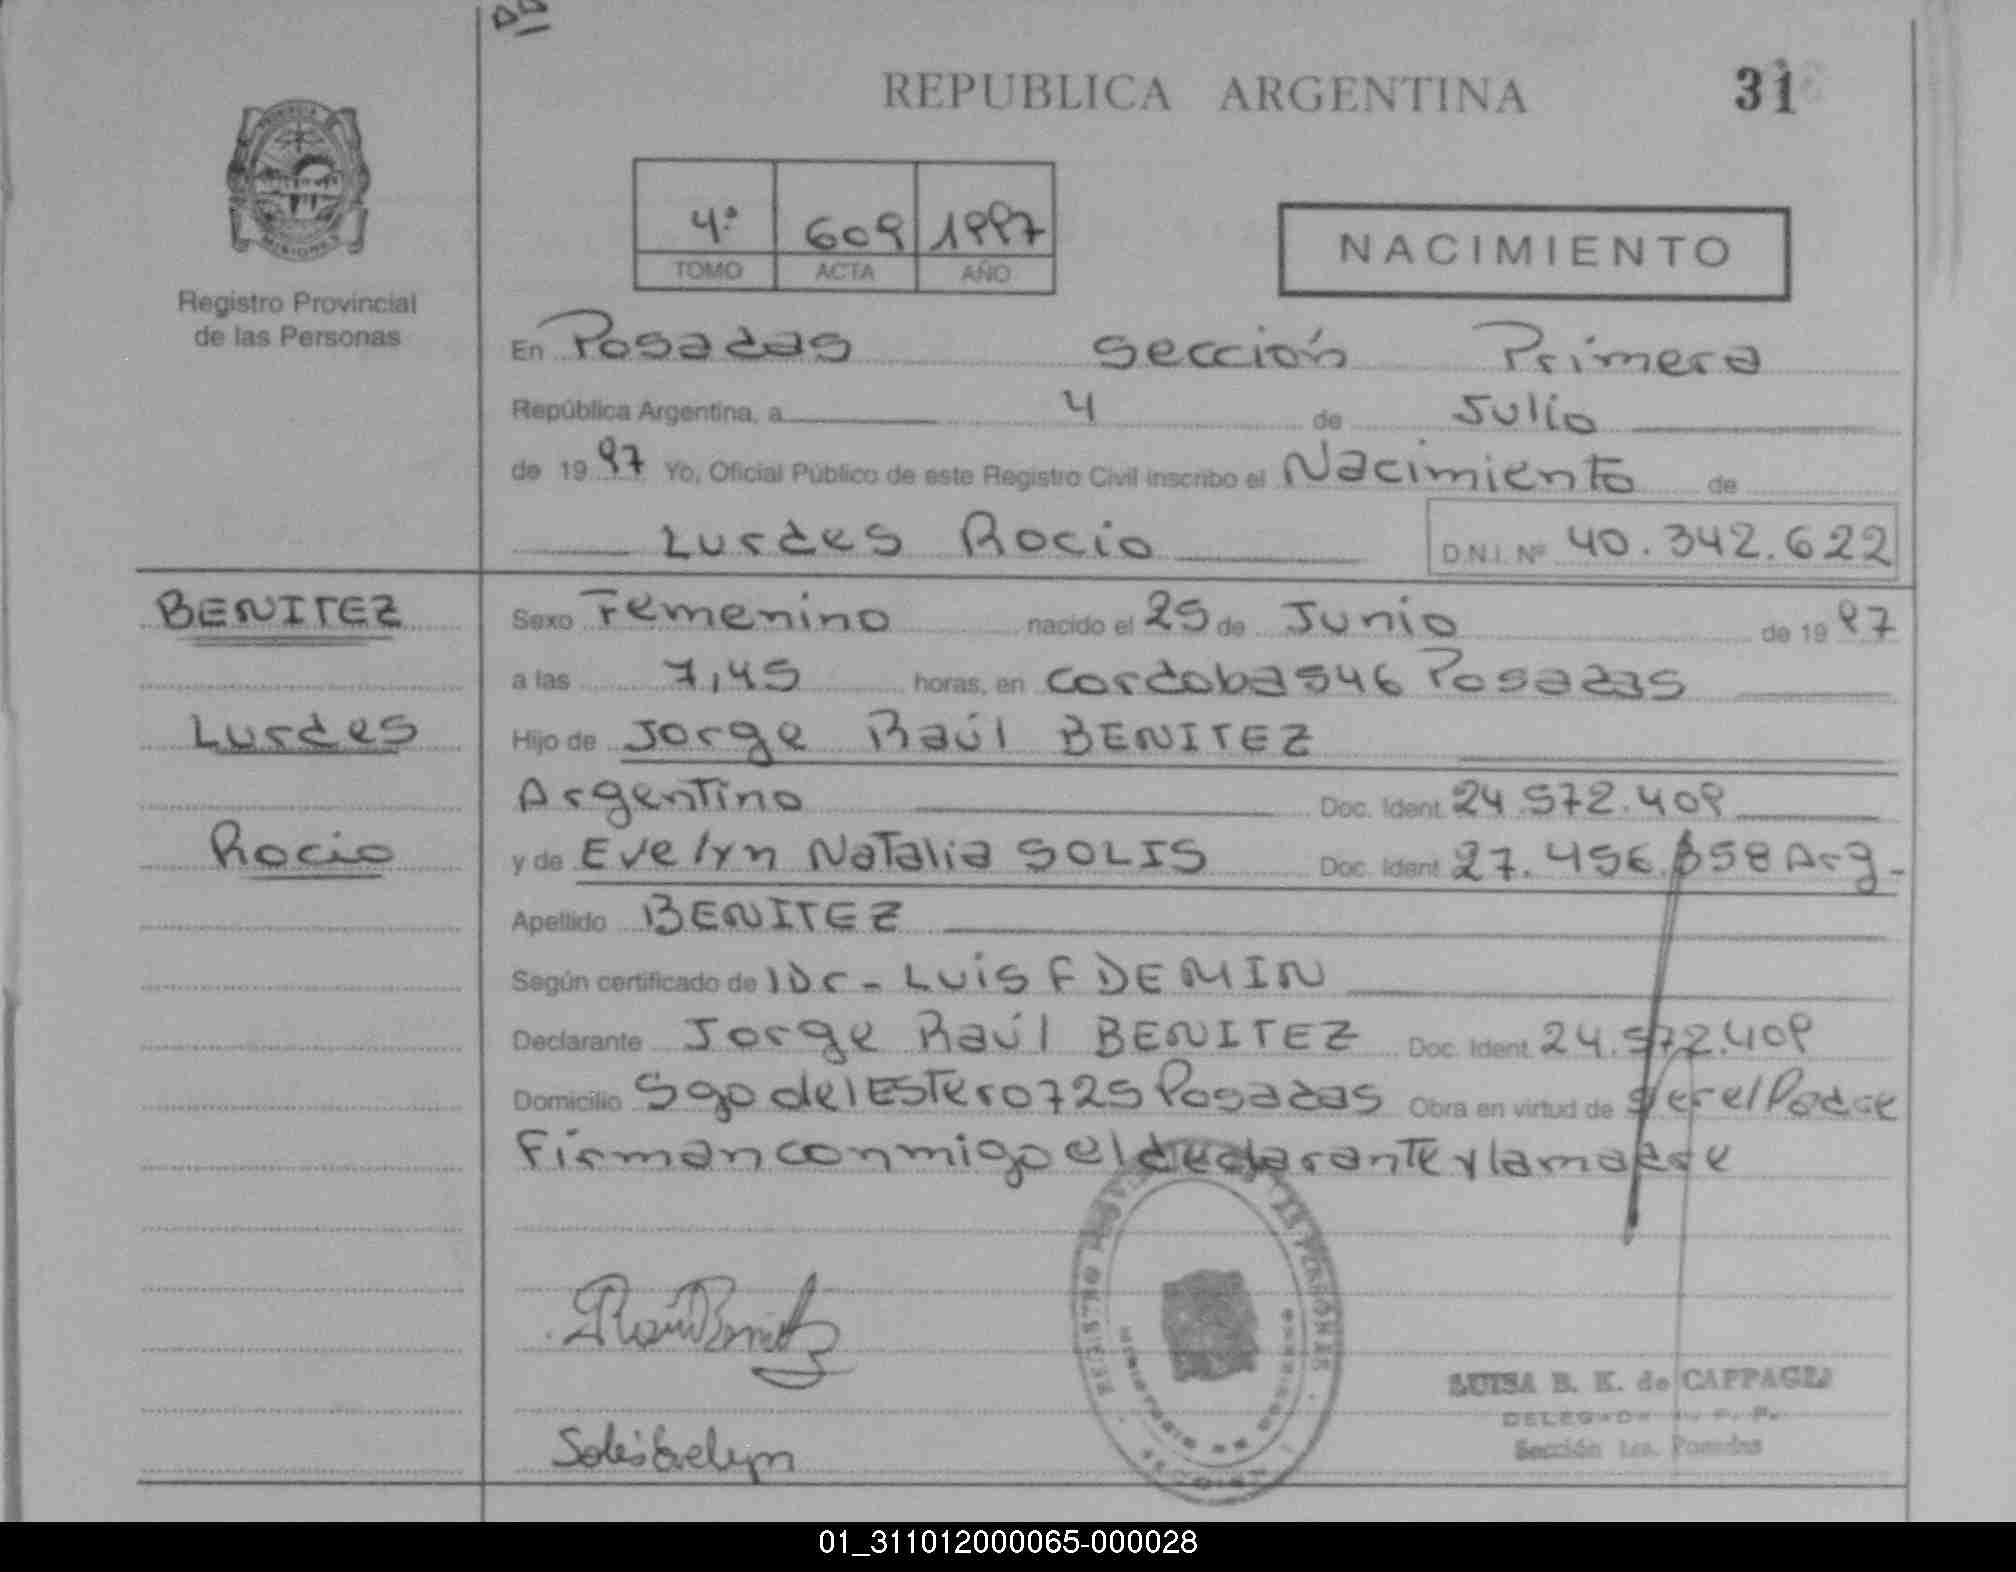 REPUBLICA ARGENTINA 31
4º 609 1997
TOMO ACTA AÑO
NACIMIENTO
Registro Provincial
de las Personas
En Posadas sección Primera
República Argentina, a 4 de Julio
de 1997 Yo, Oficial Público de este Registro Civil inscribo el Nacimiento de
Lurdes Rocio D.N.I. Nº 40.342.622
BENITEZ
Lurdes
Rocio
Sexo Femenino nacido el 25 de Junio de 1997
a las 7,45 horas, en cordoba 546 Posadas
Hijo de Jorge Raúl BENITEZ
Argentino Doc. Ident. 24.572.409
y de Evelyn Natalia SOLIS Doc. Ident. 27.456. Arg-
Apellido BENITEZ
Según certificado de Dr- Luis F DEMIN
Declarante Jorge Raúl BENITEZ Doc. Ident. 24.572.409
Domicilio Sgo del Estero 725 Posadas Obra en virtud de ser el Padre
Firman conmigo el declarante y la madre
Solis Evelyn
LUISA B. K. de CAPPAGLI
Sección 1ra. Posadas
01_311012000065-000028